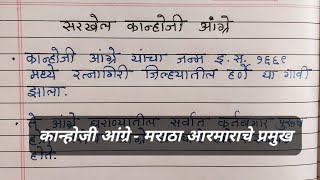 सरखेल कान्होजी आंग्रे
• कान्होजी आंग्रे यांचा जन्म इ. स. १६६९
मध्ये रत्नागिरी जिल्ह्यातील हर्णे या गावी
झाला.
• ते आंग्रे घराण्यातील सर्वात कर्तबगार पुरुष
कान्होजी आंग्रे - मराठा आरमाराचे प्रमुख
होते.